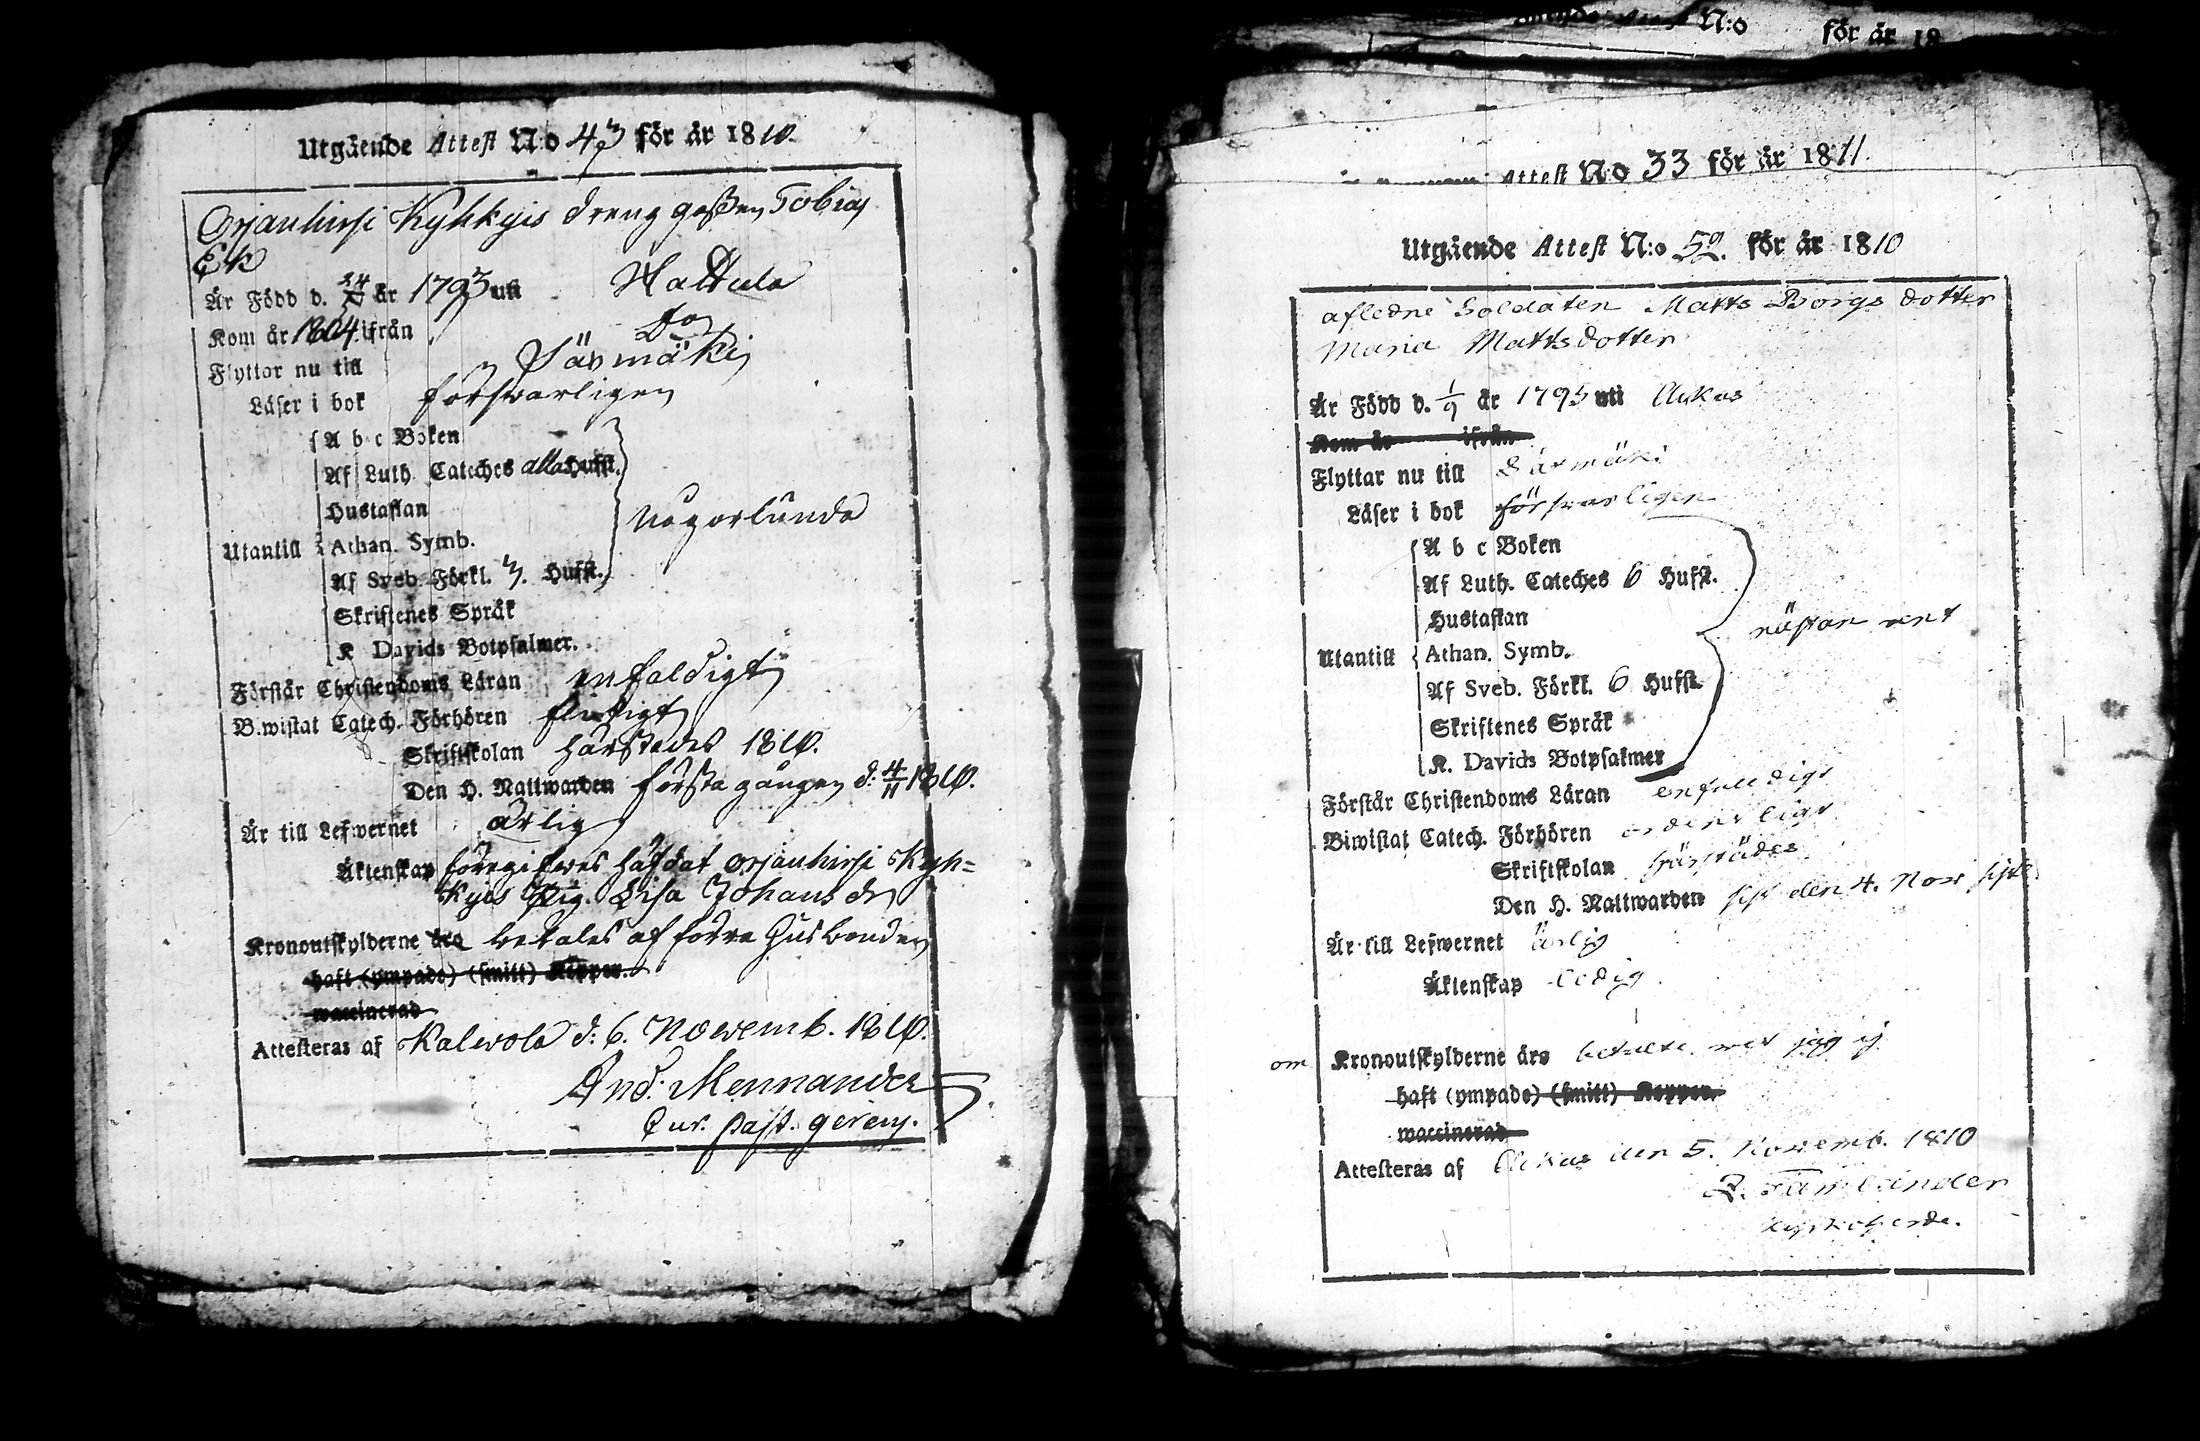 Utgående Attest N:o 43 för år 1810.
Orjanhirsi Kyhkyis dreng gossen Tobias
Ek
Är Född d. 24/X år 1793 uti Hattula
Kom år 1804 ifrån Do
Flyttar nu till Säxmäki
Läser i bok forswarligen
A b c Boken
Af Luth. Cateches alla Hufst.
Hustaflan
Utantill Athan. Symb. någorlunda
Af Sveb. Förkl. 3. Hufst.
Skriftenes Språk
K Davids Botpsalmer.
Förstår Christendoms Läran enfaldigt
Biwistat Catech. Förhören flitigt
Skriftskolan härstedes 1810.
Den H. Nattwarden första gången d: 4/11 1810.
Är till Lefwernet ärlig
Äktenskap föregifwes häfdat Orjanhirsi Kyh=
kyis Pig. Lisa Johansdr
Kronoutskylderne äro betales af förra Husbonden
haft (ympade) (smitt) Koppor.
waccinerad
Attesteras af Kalwola d: 6. Nowemb. 1810.
And. Mennander
Cur. past. gerens.
N:o för år 18
Attest N:o 33 för år 1811.
Utgående Attest N:o 52. för år 1810
afledne Soldaten Matts Borgs dotter
Maria Mattsdotter
Är Född d. 1/9 år 1795 uti Akas
Kom år ifrån
Flyttar nu till Säxmäki
Läser i bok försvarligen
A b c Boken
Af Luth. Cateches 6 Hufst.
Hustaflan
Utantill Athan. Symb. nästan rent
Af Sveb. Förkl. 6 Hufst.
Skriftenes Språk
K. Davids Botpsalmer
Förstår Christendoms Läran enfaldigt
Biwistat Catech. Förhören ordenteligt
Skriftskolan härstädes
Den H. Nattwarden sist den 4. Nov sistl.
Är till Lefwernet ärlig
Äktenskap ledig
om Kronoutskylderne äro betalte vet jag ej
haft (ympade) (smitt) Koppor.
waccinerad
Attesteras af Akas den 5. Novemb. 1810
Kyrkoherde.